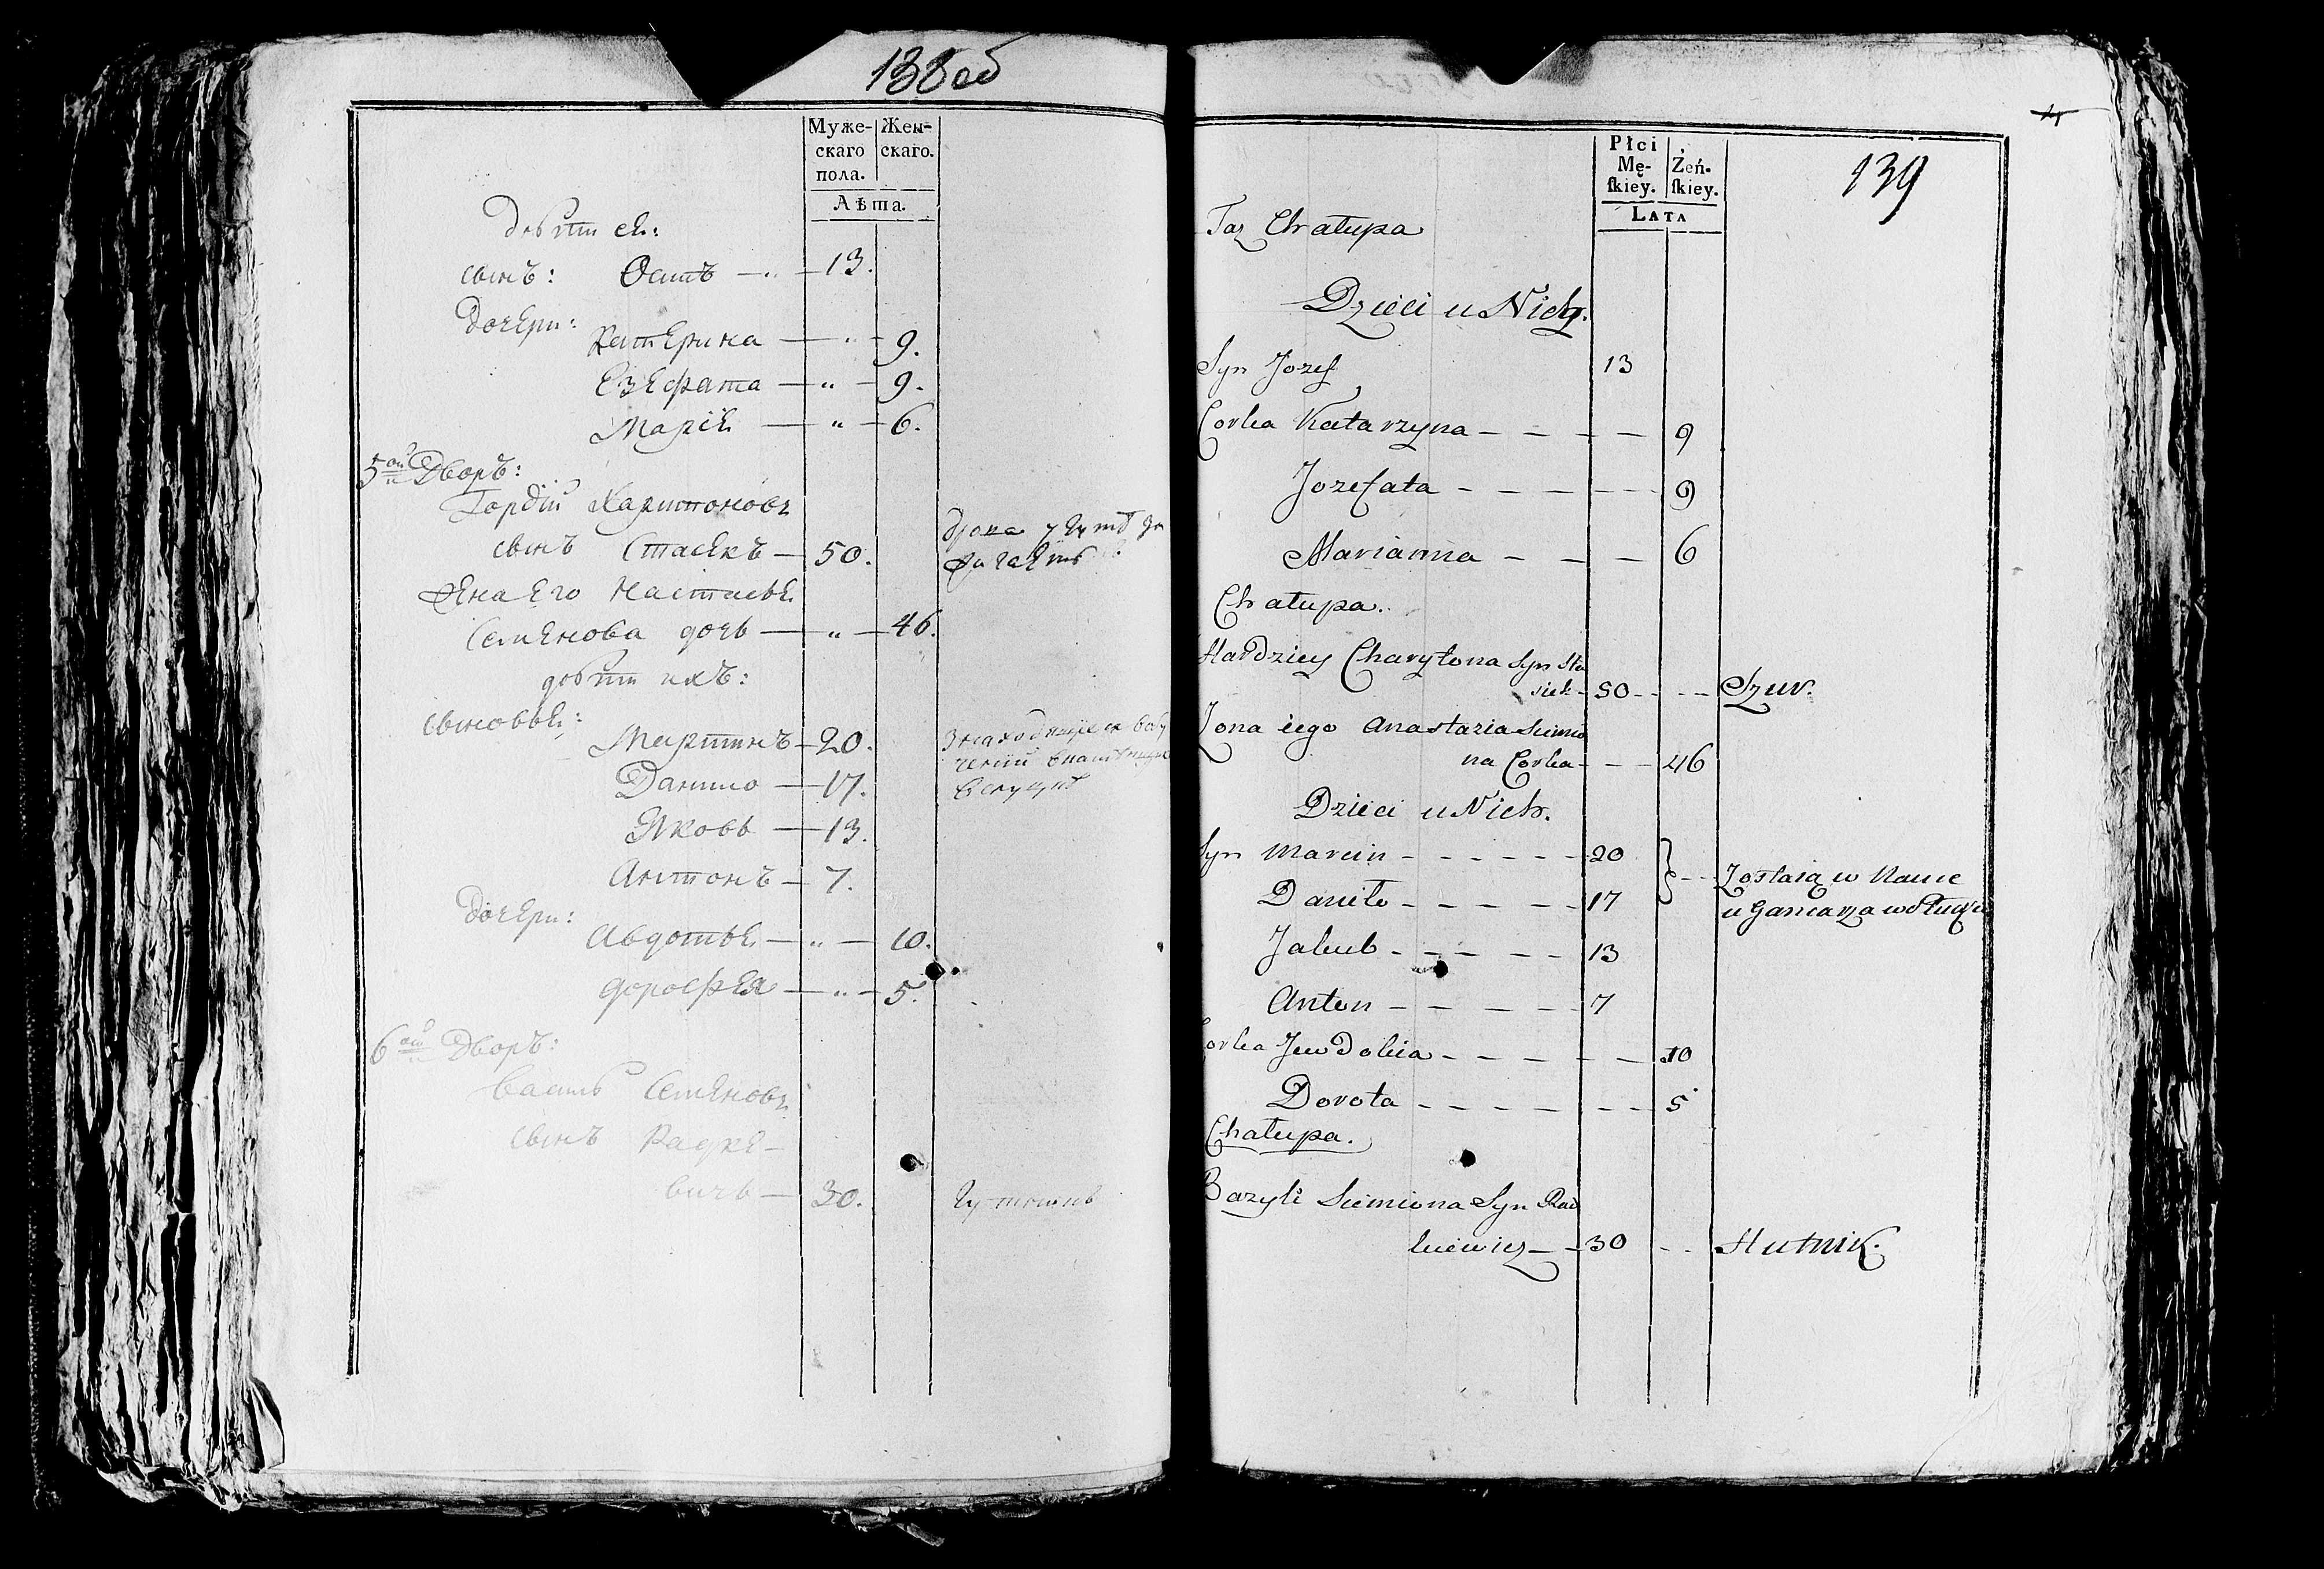 138 об
Муже-
скаго
пола.
Жен-
скаго.
Лѣта.
сынъ: Осипъ — " — 13.
дочери:
Катерина — " — 9.
Езефата — " — 9.
Маріе — " — 6.
5ой Дворъ:
Гордій Харитоновъ
сынъ Стасекъ — 50.
жена Его Настасье
Семенова дочь — " — 46.
ихъ:
сыновье:
Мартинъ — 20.
Данило — 17.
Яковъ — 13.
Антонъ — 7.
дочери:
Авдотье — " — 10.
дорофея — " — 5.
6ой Дворъ:
Василь Семеновъ
сынъ Радке-
вичь — 30.
4
139
Płci
Mę-
ſkiey.
Żeń-
ſkiey.
LATA
Taz Chałupa
Dzieci u Nich.
Syn Jozef 13
Corka Katarzyna — — — — 9
Jozefata - - — - - - 9
Marianna — — — 6
Chałupa.
Hardziey Charytona Syn Sta
siek - 50 - - - - Szur.
Zona iego Anastazia Siemio
na Corka - - — 46
Dzieci u Nich.
Syn Marcin - - - - - - 20
Daniło - - - - - 17
Zostaią w Nauce
u Garcarza w Słucku
Jakub - - - - - 13
Anton - - - - - 7
Corka Jewdokia - - - - - — 10
Dorota - - - - - - - 5
Chałupa.
Bazyli Siemiona Syn Rad
kiewicz — - 30 - - Hutnik.